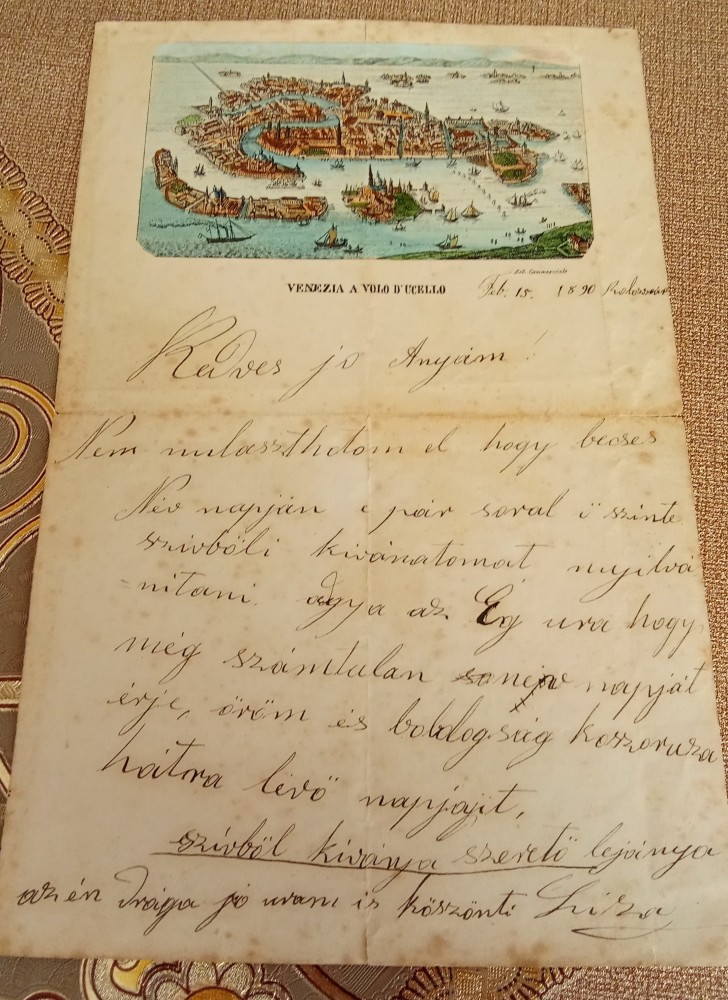 Lit. Commerciale
VENEZIA A VOLO D'UCELLO Feb. 15. 1890 Kolozsvár
Kedves jó Anyám!
Nem mulaszthatom el hogy becses
Név napján e pár soral ö szinte
szívböli kivánatomat nyilvá
nitani. adgya az Ég ura hogy
még számtalan név napját
érje, öröm és boldogság koszoruza
hátra lévö napjajit,
szívböl kívánja szeretö lejánya
az én drága jó uram is köszönti Liza